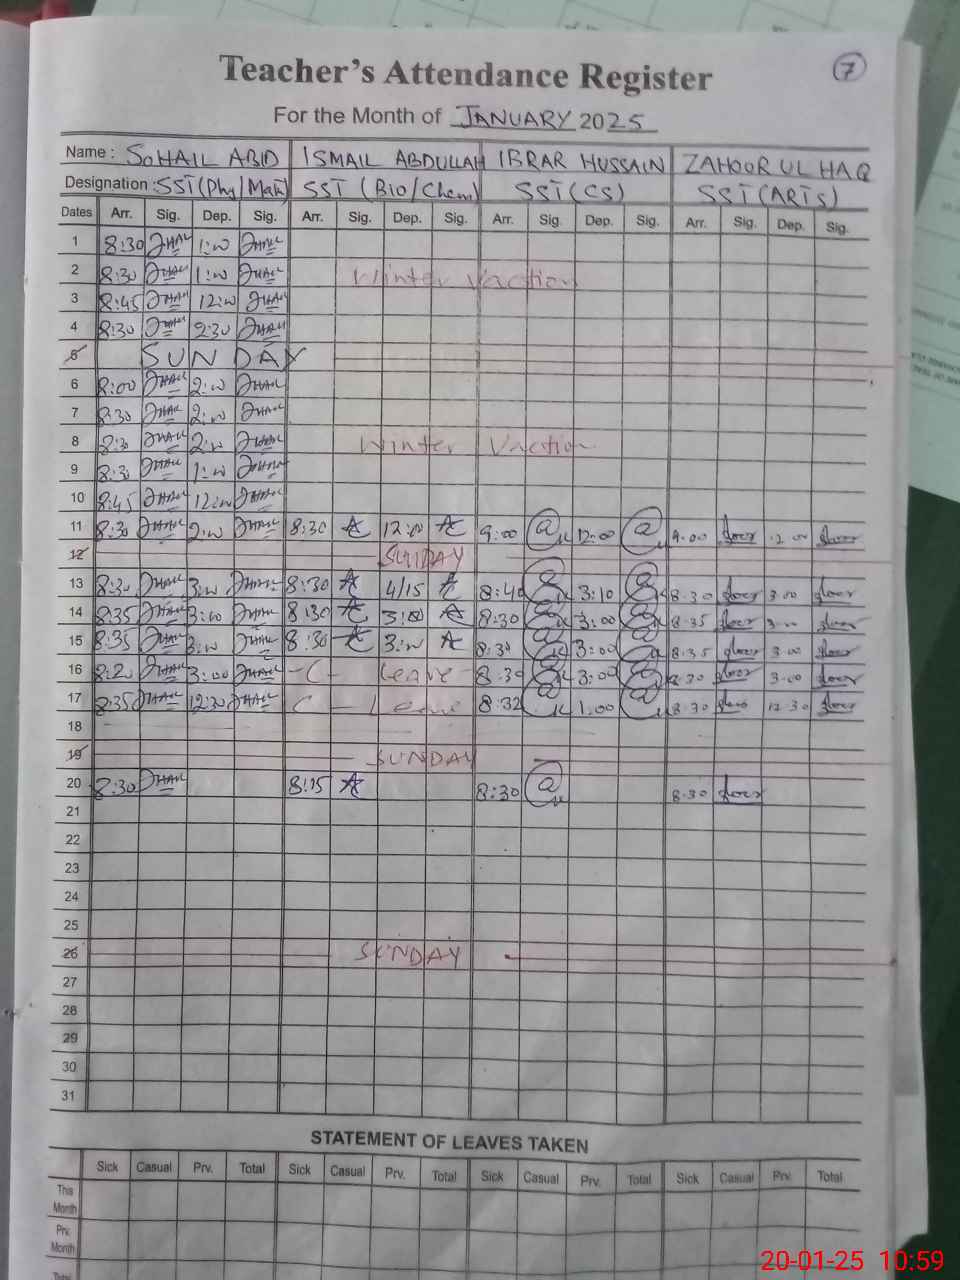 7
Teacher's Attendance Register
For the Month of JANUARY 2025
Name : SOHAIL ABID ISMAIL ABDULLAH IBRAR HUSSAIN ZAHOOR UL HAQ
Designation : SST (Phy/Math) SST (Bio/Chem) SST (CS) SST (ARTS)
Dates Arr. Sig. Dep. Sig. Arr. Sig. Dep. Sig. Arr. Sig. Dep. Sig. Arr. Sig. Dep. Sig.
1 8:30 1:00
2 8:30 1:00 Winter Vacation
3 8:45 12:00
4 8:30 2:30
5 SUNDAY
6 8:00 2:00
7 8:30 2:00
8 8:30 2:00 Winter Vacation
9 8:30 1:00
10 8:45 12:00
11 8:30 2:00 8:30 12:00 9:00 12:00 9.00 12 00
12 SUNDAY
13 8:30 3:00 8:30 4/15 8:40 3:10 8.30 3.00
14 8:35 3:00 8:30 3:00 8:30 3:00 8.35 3.00
15 8:35 3:00 8:30 3:00 8:30 3:00 8.35 3.00
16 8:20 3:00 -C- Leave 8:30 3:00 8.30 3.00
17 8:35 12:30 C - Leave 8:32 1.00 8.30 12.30
18
19 SUNDAY
20 8:30 8:15 8:30 8.30
21
22
23
24
25
26 SUNDAY
27
28
29
30
31
STATEMENT OF LEAVES TAKEN
Sick Casual Prv. Total Sick Casual Prv. Total Sick Casual Prv. Total Sick Casual Prv. Total
This
Month
Prv.
Month
Total
20-01-25 10:59